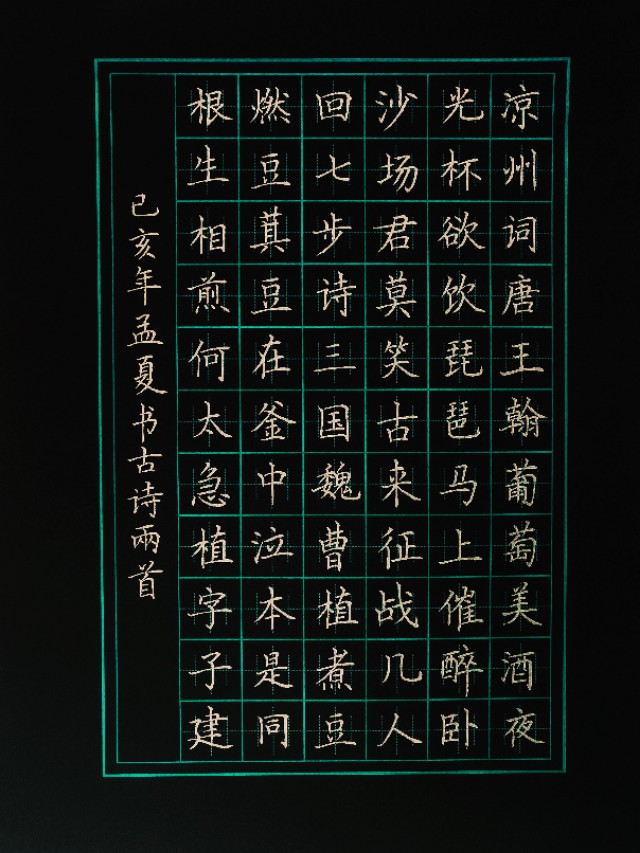 凉州词唐王翰葡萄美酒夜
光杯欲饮琵琶马上催醉卧
沙场君莫笑古来征战几人
回七步诗三国魏曹植煮豆
燃豆萁豆在釜中泣本是同
根生相煎何太急植字子建
己亥年孟夏书古诗两首